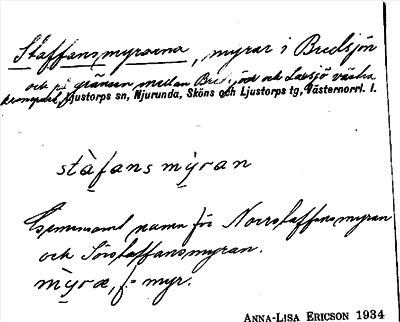 Staffansmyrarna, myrar i Bredsjön
och på gränsen mellan Bredsjön och Laxsjö västra
Ljustorps sn, Njurunda, Sköns och Ljustorps tg, Västernorrl. l.
stàfans mỳran
Gemensamt namn för Norrstaffansmyran
och Sörstaffansmyran.
mỳra, f = myr.
ANNA-LISA ERICSON 1934